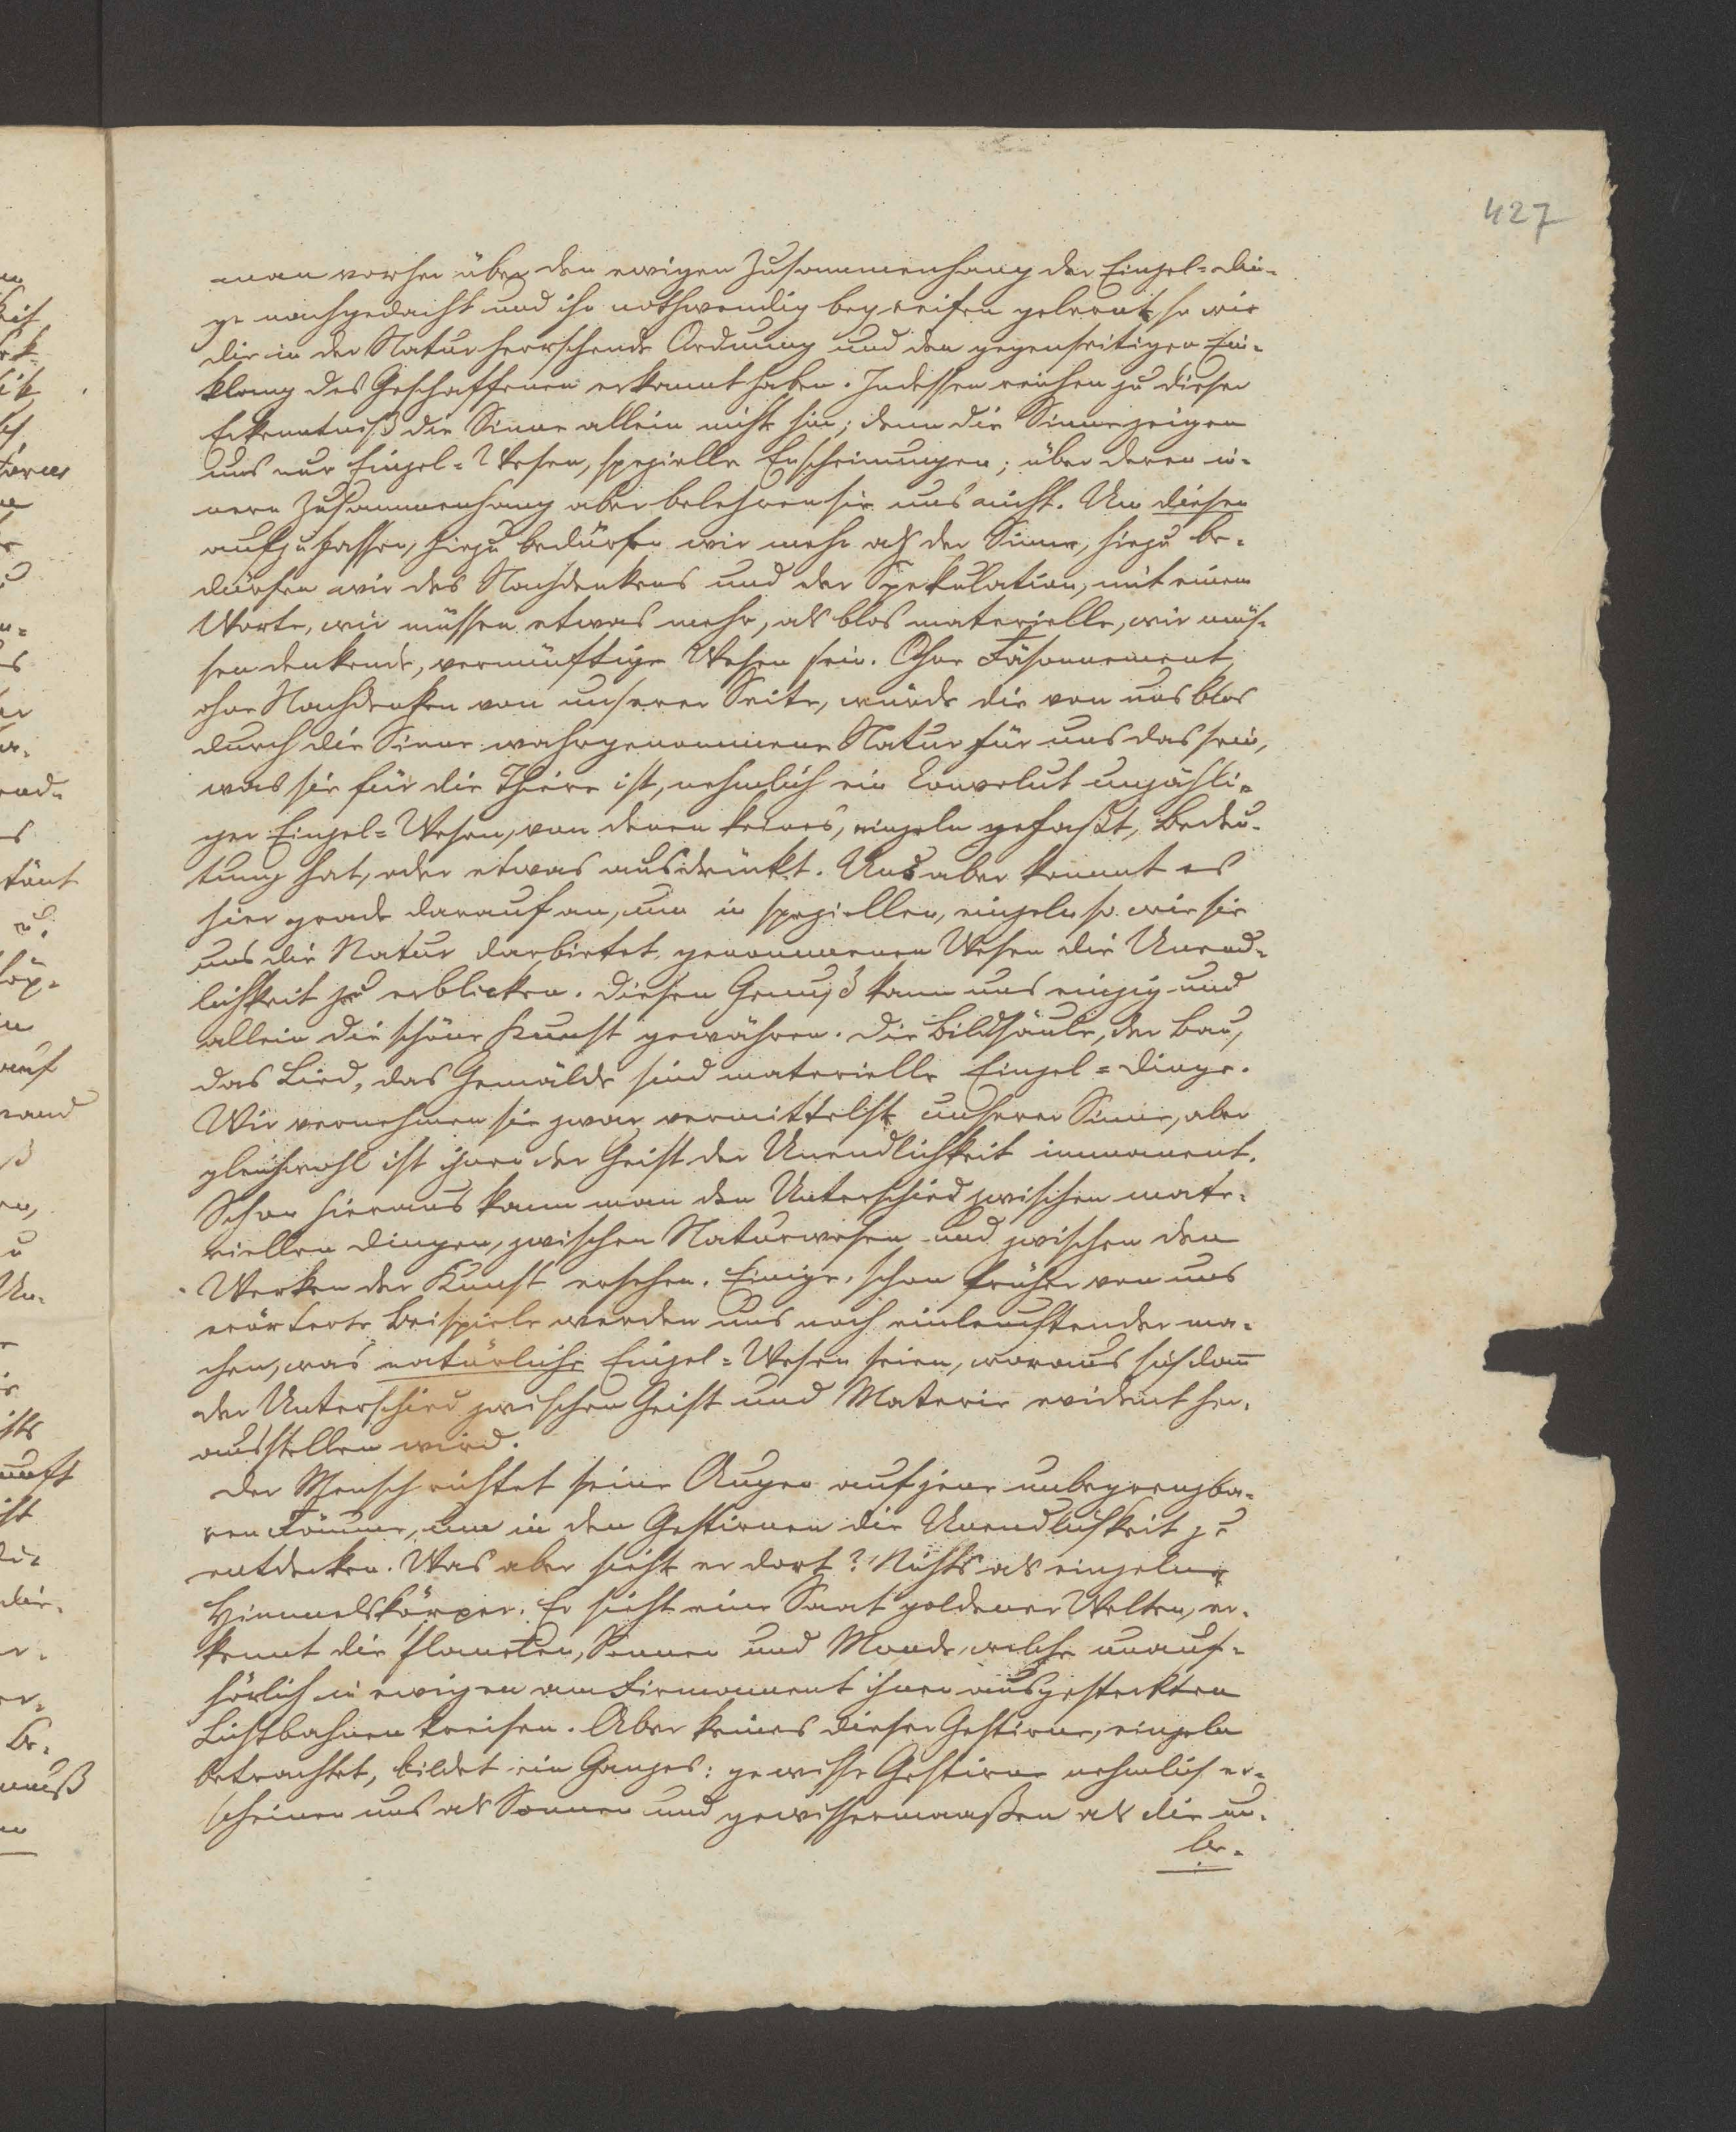 427
man vorher über den ewigen Zusammenhang der Einzel=Din-
ge nachgedacht und ihn nothwendig begreifen gelernt, so wie
die in der Natur herrschende Ordnung und den gegenseitigen Ein-
klang des Geschaffenen erkannt haben. Indessen reichen zu dieser
Erkenntniß die Sinne allein nicht hin; denn die Sinne zeigen
uns nur Einzel=Wesen, spezielle Erscheinungen; über deren in-
nern Zusammenhang aber belehren sie uns nicht. Um diesen
aufzufassen, hiezu bedürfen wir mehr als der Sinne, hiezu be-
dürfen wir des Nachdenkens und der Spekulation, mit einem
Worte, wir müssen etwas mehr, als blos materielle, wir müs-
sen denkende, vernünftige Wesen sein. Ohne Räsonnement,
ohne Nachdenken von unserer Seite, würde die von uns blos
durch die Sinne wahrgenommene Natur für uns das sein,
was sie für die Thiere ist, nehmlich ein Convolut unzähli-
ger Einzel=Wesen, von denen keines, einzeln gefaßt, Bedeu-
tung hat, oder etwas ausdrückt. Uns aber kommt es
hier grade darauf an, um in speziellen, einzeln so wie sie
uns die Natur darbietet genommenen Wesen die Unend-
lichkeit zu erblicken. Diesen Genuß kann uns einzig und
allein die schöne Kunst gewähren. Die Bildsäule, der Bau,
das Lied, das Gemälde sind materielle Einzel=Dinge.
Wir vernehmen sie zwar vermittelst unserer Sinne, aber
gleichwohl ist ihnen der Geist der Unendlichkeit immanent.
Schon hieraus kann man den Unterschied zwischen mate-
riellen Dingen, zwischen Naturwesen und zwischen den
Werken der Kunst ersehen. Einige, schon früher von uns
erörterte Beispiele werden uns noch einleuchtender ma-
chen, was natürliche Einzel=Wesen seien, woraus sich dann
der Unterschied zwischen Geist und Materie evident her-
ausstellen wird.
Der Mensch richtet seine Augen auf jene unbegrenzba-
ren Räume, um in den Gestirnen die Unendlichkeit zu
entdecken. Was aber sieht er dort? Nichts als einzelne
Himmelskörper. Er sieht eine Saat goldener Welten, er-
kennt die Planeten, Sonnen und Monde, welche unauf-
hörlich in ewigen am Firmament ihnen ausgesteckten
Lichtbahnen kreisen. Aber keines dieser Gestirne, einzeln
betrachtet, bildet ein Ganzes: gewisse Gestirne nehmlich er-
scheinen uns als Sonnen und gewissermaaßen als die un-
be-